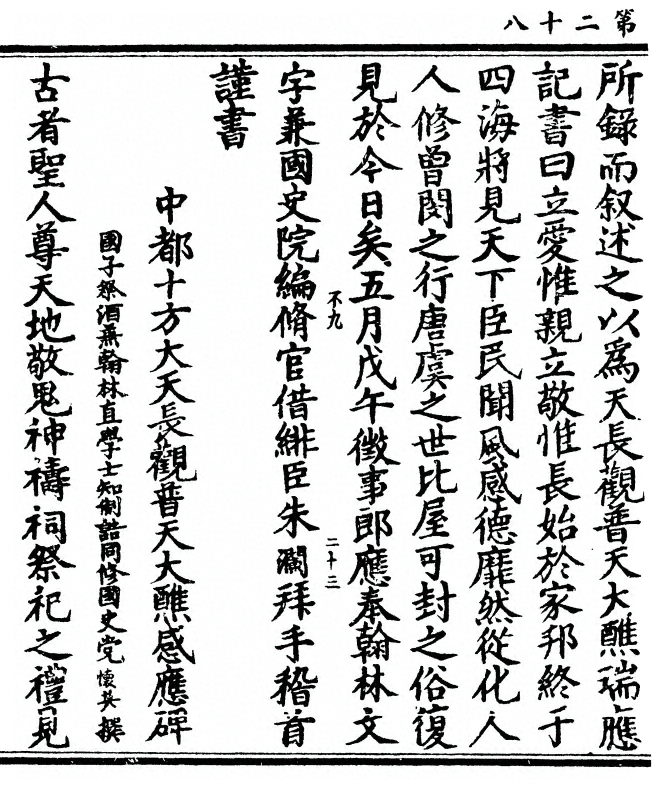 第二十八
所錄而叙述之以爲天長觀普天大醮瑞應
記書曰立愛惟親立敬惟長始於家邦終于
四海將見天下臣民聞風感德靡然從化人
人修曾閔之行唐虞之世比屋可封之俗復
見於今日矣五月戊午徵事郎應奉翰林文
不九
二十三
字兼國史院編脩官借緋臣朱瀾拜手稽首
謹書
中都十方大天長觀普天大醮感應碑
國子祭酒兼翰林直學士知制誥同修國史党懷英撰
古者聖人尊天地敬鬼神禱祠祭祀之禮見